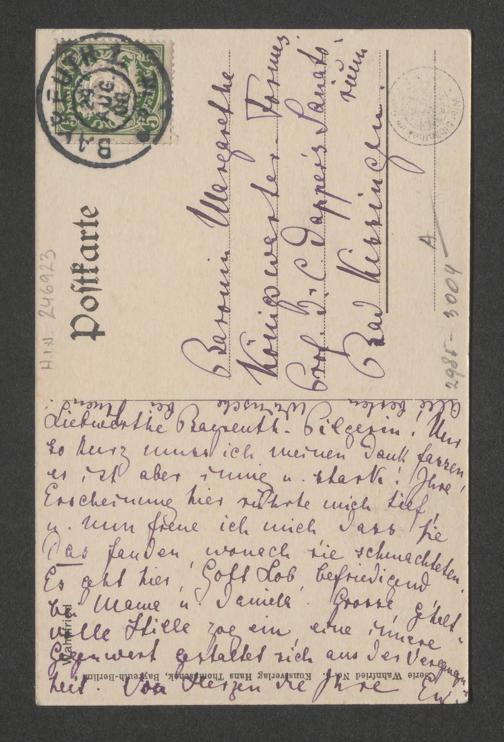 BAYREUTH 1
29 AUG 08
5
Postkarte
Baronin Margarethe
Königswarter-Formes
Prof. Dr. C. Dapper's Sanato-
rium
Bad Kissingen.
H.I.N. 246923
2985-3004
A
Alle besten Wünsche der
Liebwerthe Bayreuth-Pilgerin! Nur
so kurz muss ich meinen Dank fassen,
er ist aber innig u. stark. Ihre
Erscheinung hier rührte mich tief,
u. nun freue ich mich dass Sie
Das fanden, wonach sie schmachteten.
Es geht hier, Gott Lob, befriedigend
bei Mama u. Daniela. Grosse, gehalt-
volle Stille zog ein, eine innere
Gegenwart gestaltet sich aus der Vergangen-
heit. Von Herzen die Ihre Eva.
Wahnfried
Serie Wahnfried No. Kunstverlag Hans Thomaschek, Bayreuth-Berlin